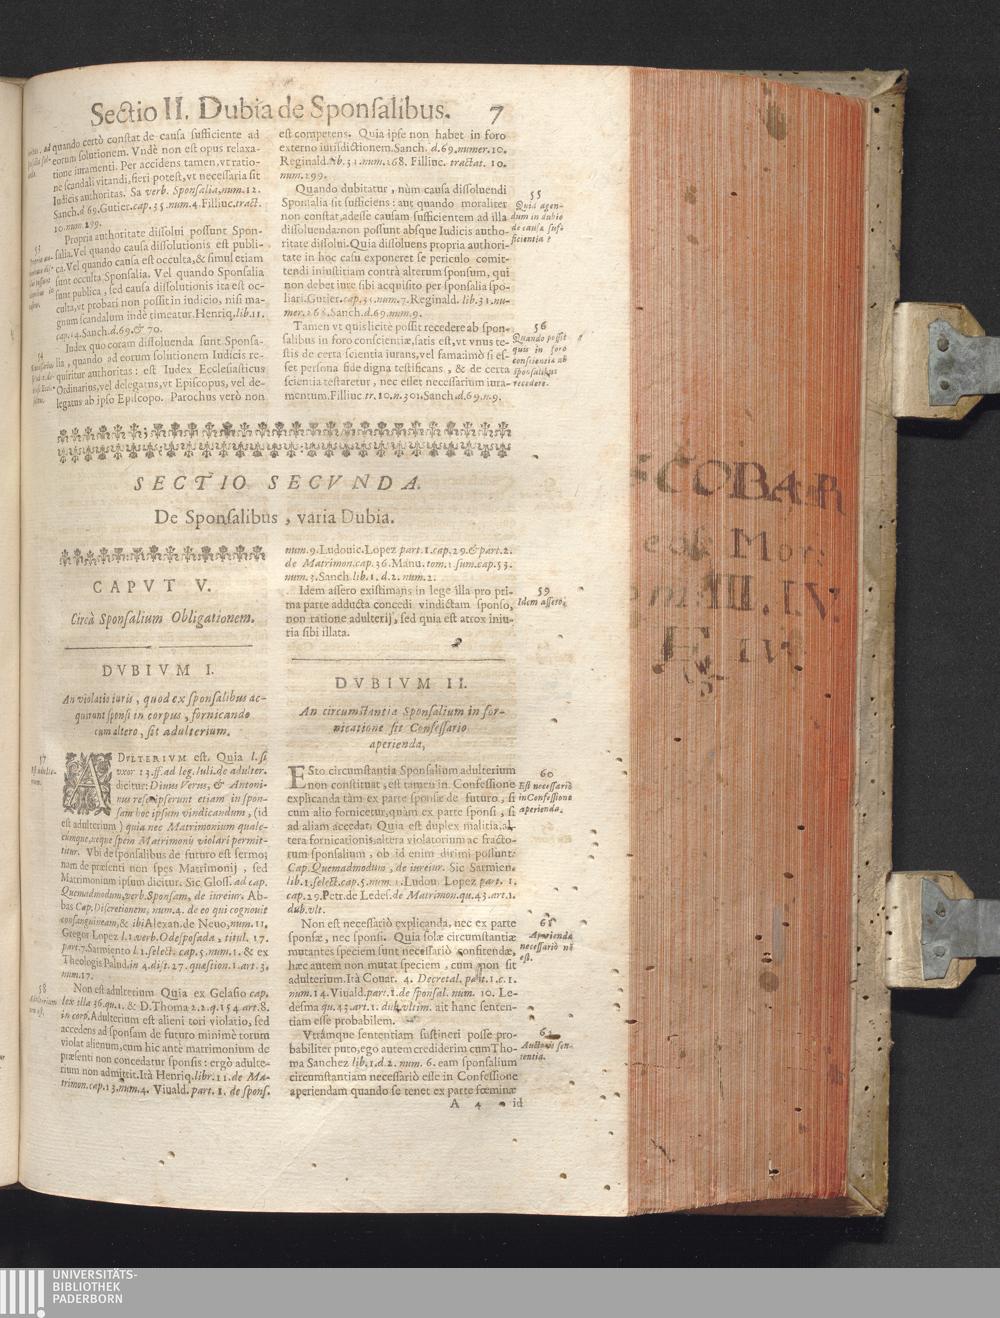 Sectio II. Dubia de Sponſalibus. 7
quando certò conſtat de cauſa ſufficiente ad
eorum ſolutionem. Vndè non eſt opus relaxa-
tione iuramenti. Per accidens tamen, vt ratio-
ne ſcandali vitandi, fieri poteſt, vt neceſſaria ſit
Iudicis authoritas. Sa verb. Sponſalia, num. 12.
Sanch. d. 69. Gutier. cap. 35. num. 4. Filliuc. tract.
10. num. 299.
53
Propria authoritate diſſolui poſſunt Spon-
ſalia. Vel quando cauſa diſſolutionis eſt publi-
ca. Vel quando cauſa eſt occulta, & ſimul etiam
ſunt occulta Sponſalia. Vel quando Sponſalia
ſunt publica, ſed cauſa diſſolutionis ita eſt oc-
culta, vt probari non poſſit in iudicio, niſi ma-
gnum ſcandalum indè timeatur. Henriq. lib. 11.
cap. 14. Sanch. d. 69. & 70.
54
Iudex quo coram diſſoluenda ſunt Sponſa-
lia, quando ad eorum ſolutionem Iudicis re-
quiritur authoritas: eſt Iudex Eccleſiaſticus
Ordinarius, vel delegatus, vt Epiſcopus, vel de-
legatus ab ipſo Epiſcopo. Parochus verò non
eſt competens. Quia ipſe non habet in foro
externo iuriſdictionem. Sanch. d. 69. numer. 10.
Reginald. lib. 31. num. 268. Filliuc. tractat. 10.
num. 299.
Quando dubitatur, nùm cauſa diſſoluendi
Sponſalia ſit ſufficiens: aut quando moraliter
non conſtat, adeſſe cauſam ſufficientem ad illa
diſſoluenda: non poſſunt abſque Iudicis autho-
ritate diſſolui. Quia diſſoluens propria authori-
tate in hoc caſu exponeret ſe periculo comit-
tendi iniuſtitiam contrà alterum ſponſum, qui
non debet iure ſibi acquiſito per ſponſalia ſpo-
liari. Gutier. cap. 35. num. 7. Reginald. lib. 31. nu-
mer. 268. Sanch. d. 69. num. 9.
55
Quid agen-
dum in dubio
de cauſa ſuf-
ficientia?
Tamen vt quis licitè poſſit recedere ab ſpon-
ſalibus in foro conſcientiæ, ſatis eſt, vt vnus te-
ſtis de certa ſcientia iurans, vel fama: imò ſi eſ-
ſet perſona fide digna teſtificans, & de certa
ſcientia teſtaretur, nec eſſet neceſſarium iura-
mentum. Filliuc. tr. 10. n. 301. Sanch. d. 69. n. 9.
56
Quando poſſit
quis in foro
conſcientia ab
ſponſalibus
recedere.
SECTIO SECVNDA.
De Sponſalibus, varia Dubia.
CAPVT V.
Circà Sponſalium Obligationem.
DVBIVM I.
An violatio iuris, quod ex ſponſalibus ac-
quirunt ſponſi in corpus, fornicando
cum altero, ſit adulterium.
57
ADVLTERIVM eſt. Quia l. ſi
vxor 13. ff. ad leg. Iuli. de adulter.
dicitur: Diuus Verus, & Antoni-
nus reſcripſerunt etiam in ſpon-
ſam hoc ipſum vindicandum, (id
eſt adulterium) quia nec Matrimonium quale-
cumque, neque ſpem Matrimonij violari permit-
titur. Vbi de ſponſalibus de futuro eſt ſermo;
nam de præſenti non ſpes Matrimonij, ſed
Matrimonium ipſum dicitur. Sic Gloſſ. ad cap.
Quemadmodum, verb. Sponſam, de iureiur. Ab-
bas Cap. Diſcretionem, num. 4. de eo qui cognouit
conſanguineam, & ibi Alexan. de Neuo, num. 11.
Gregor Lopez l. 1. verb. O deſpoſada, titul. 17.
part. 7. Sarmiento l. 1. ſelect. cap. 5. num. 1. & ex
Theologis Palud. in 4. diſt. 27. quæſtion. 1. art. 3.
num. 17.
58
Non eſt adulterium Quia ex Gelaſio cap.
lex illa 36. qu. 1. & D. Thoma 2. 2. q. 154. art. 8.
in corp. Adulterium eſt alieni tori violatio, ſed
accedens ad ſponſam de futuro minimè torum
violat alienum, cum hic antè matrimonium de
præſenti non concedatur ſponſis: ergò adulte-
rium non admittit. Ità Henriq. libr. 11. de Ma-
trimon. cap. 13. num. 4. Viuald. part. 1. de ſponſ.
num. 9. Ludouic. Lopez part. 1. cap. 29. & part. 2.
de Matrimon. cap. 36. Manu. tom. 1. ſum. cap. 53.
num. 3. Sanch. lib. 1. d. 2. num. 2.
Idem aſſero exiſtimans in lege illa pro pri-
ma parte adducta concedi vindictam ſponſo,
non ratione adulterij, ſed quia eſt atrox iniu-
ria ſibi illata.
59
Idem aſſero.
DVBIVM II.
An circumſtantia Sponſalium in for-
nicatione ſit Confeſſario
aperienda.
ESto circumſtantia Sponſalium adulterium
non conſtituat, eſt tamen in Confeſſione
explicanda tàm ex parte ſponſæ de futuro, ſi
cum alio fornicetur, quàm ex parte ſponſi, ſi
ad aliam accedat. Quia eſt duplex malitia, al-
tera fornicationis, altera violatorium ac fracto-
rum ſponſalium, ob id enim dirimi poſſunt.
Cap. Quemadmodum, de iureiur. Sic Sarmien.
lib. 1. ſelect. cap. 5. num. 1. Ludou Lopez part. 1.
cap. 29. Petr. de Ledeſ. de Matrimon. qu. 43. art. 1.
dub. vlt.
60
Eſt neceſſariò
in Confeſſione
aperienda.
Non eſt neceſſariò explicanda, nec ex parte
ſponſæ, nec ſponſi. Quia ſolæ circumſtantiæ
mutantes ſpeciem ſunt neceſſariò confitendæ,
hæc autem non mutat ſpeciem, cum non ſit
adulterium. Ità Couar. 4. Decretal. part. 1. c. 1.
num. 14. Viuald. part. 1. de ſponſal. num. 10. Le-
deſma qu. 43. art. 1. dub. vltim. ait hanc ſenten-
tiam eſſe probabilem.
61
Aperienda
neceſſariò nō
eſt.
Vtrámque ſententiam ſuſtineri poſſe pro-
babiliter puto, ego autem crediderim cum Tho-
ma Sanchez lib. 1. d. 2. num. 6. eam ſponſalium
circumſtantiam neceſſariò eſſe in Confeſſione
aperiendam quando ſe tenet ex parte fœminæ
62
Auctoris ſen-
tentia.
A 4 id
COBAR
IV.
UNIVERSITÄTS-
BIBLIOTHEK
PADERBORN